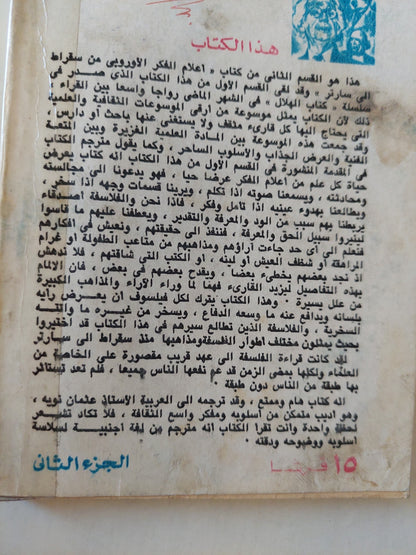 هذا الكتاب
هذا هو القسم الثانى من كتاب « أعلام الفكر الأوروبى من سقراط
الى سارتر » وقد لقى القسم الأول من هذا الكتاب الذى صدر فى
سلسلة « كتاب الهلال » فى الشهر الماضى رواجا واسعا بين القراء ،
ذلك لأن الكتاب يمثل موسوعة من أرقى الموسوعات الثقافية والعلمية
التى يحتاج اليها كل قارىء مثقف ولا يستغنى عنها باحث أو دارس ،
وقد جمعت هذه الموسوعة بين المادة العلمية الغزيرة وبين المتعة
الفنية والعرض الجذاب والأسلوب الساحر ، وكما يقول مترجم الكتاب
فى المقدمة المنشورة فى القسم الأول من هذا الكتاب انه كتاب يعرض
حياة كل علم من أعلام الفكر عرضا حيا ، فهو يدعونا الى مجالسته
ومحادثته ، ويسمعنا صوته اذا تكلم ، ويرينا قسمات وجهه اذا سخر ،
ويطالعنا بهدوء عينيه اذا تأمل وفكر ، فاذا نحن والفلاسفة أصدقاء
يربطنا بهم سبب من الود والمعرفة والتقدير ، ويعطفنا عليهم ما قاسوا
لينيروا سبيل الحق والمعرفة ، فننفذ الى حقيقتهم ، ونعيش فى أفكارهم
فنعلم الى أى حد جاءت آراؤهم ومذاهبهم من متاعب الطفولة أو غرام
المراهقة أو شظف العيش أو لينه ، أو الكتب التى شاقتهم ، فلا ندهش
اذ نجد بعضهم يخطىء بعضا ، ويقدح بعضهم فى بعض ، فان الالمام
بهذه التفاصيل ليزيد القارىء فهما لما وراء الآراء والمذاهب الكبيرة
من علل يسيرة . وهذا الكتاب يترك لكل فيلسوف أن يعرض رأيه
بلسانه ويدافع عنه ما وسعه الدفاع ، ويسخر من غيره ما واتته
السخرية ، والفلاسفة الذين تطالع سيرهم فى هذا الكتاب قد اختيروا
بحيث يمثلون مختلف أطوار الفلسفة ومذاهبها منذ سقراط الى سارتر
لقد كانت قراءة الفلسفة الى عهد قريب مقصورة على الخاصة من
العلماء ولكنها بمضى الزمن قد عم نفعها الناس جميعا ، فلم تعد تستأثر
بها طبقة من الناس دون طبقة .
انه كتاب هام وممتع ، وقد ترجمه الى العربية الأستاذ عثمان نويه ،
وهو أديب متمكن من أسلوبه ومفكر واسع الثقافة ، فلا تكاد تشعر
لحظة واحدة وانت تقرأ الكتاب أنه مترجم من لغة أجنبية لسلاسة
أسلوبه ووضوحه ودقته .
١٥ قرشا
الجزء الثانى